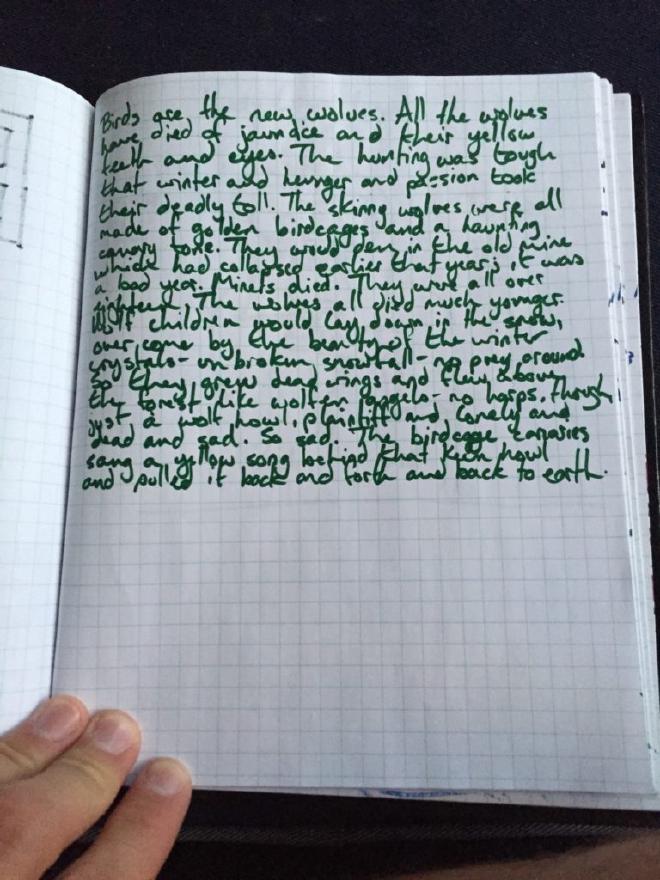 Birds are the new wolves. All the wolves
have died of jaundice and their yellow
teeth and eyes. The hunting was tough
that winter and hunger and passion took
their deadly toll. The skinny wolves were all
made of golden birdcages and a haunting
canary tone. They would den in the old mine
which had collapsed earlier that year; it was
a bad year. Miners died. They were all over
eighteen. The wolves all died much younger.
Wolf children would lay down in the snow,
overcome by the beauty of the winter
crystals - unbroken snowfall - no prey around.
So they grew dead wings and flew above
the forest like wolfen angels - no harps, though,
just a wolf howl, plaintiff and lonely and
dead and sad. So sad. The birdcage canaries
sang a yellow song behind that keen howl
and pulled it back and forth and back to earth.